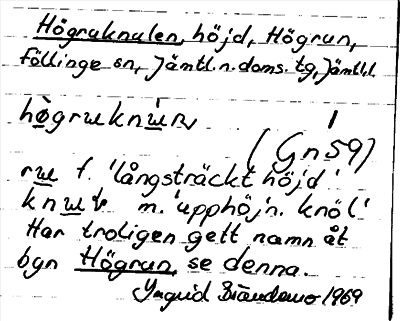 Högruknulen, höjd, Högrun,
Föllinge sn, Jämtl. n. doms. tg, Jämtl. l.
(Gn 59)
f. 'långsträckt höjd'
m. 'upphöjn. knöl'
Har troligen gett namn åt
byn Högrun, se denna.
Ingrid 1969